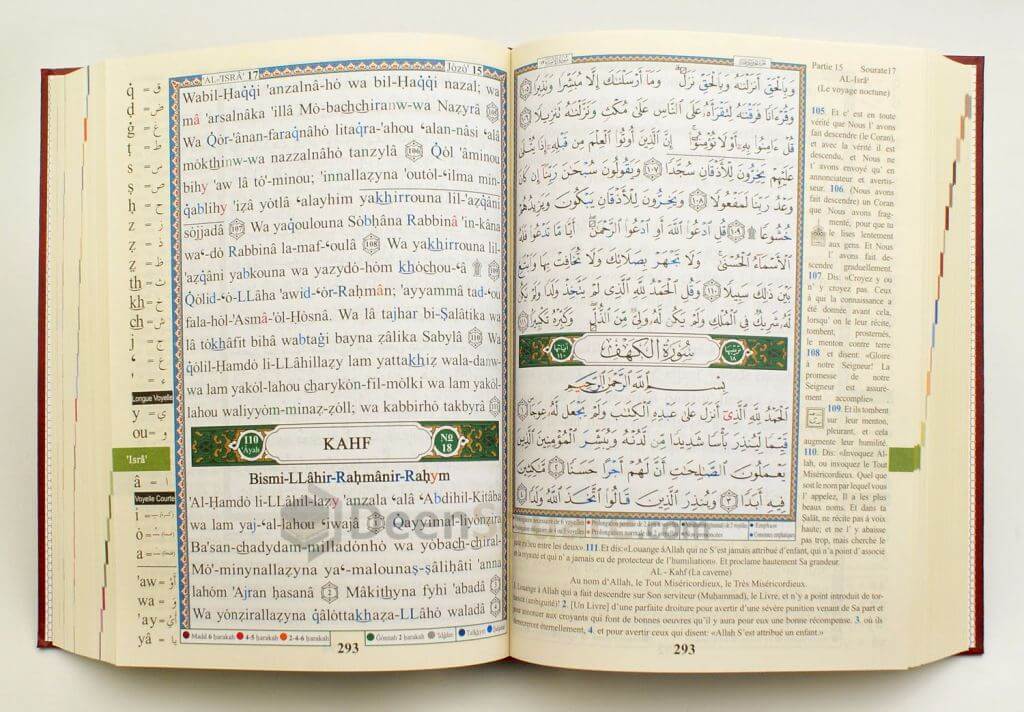 'AL-'ISRÂ' 17
Jòzò' 15
Wabil-Ḥaqqi 'anzalnâ-hò wa bil-Ḥaqqi nazal; wa
mâ 'arsalnâka 'illâ Mò-bachchiranw-wa Nazyrâ 105
Wa Qòr-'ânan-faraqnâhò litaqra-'ahou ʻalan-nâsi ʻalâ
mòkthinw-wa nazzalnâhò tanzylâ 106 Qòl 'âminou
bihy 'aw lâ tò'-minou; 'innallaẕyna 'outòl-ʻilma min-
qablihy 'iẕâ yòtlâ ʻalayhim yakhirrouna lil-'aẕqâni
sòjjadâ 107 Wa yaqoulouna Sòbḥâna Rabbinâ 'in-kâna
waʻ-dò Rabbinâ la-maf-ʻoulâ 108 Wa yakhirrouna lil-
'aẕqâni yabkouna wa yazydò-hòm khòchou-ʻâ
Qòlid-ʻò-LLâha 'awid-ʻòr-Raḥmân; 'ayyammâ tad-ʻou
fala-hòl-'Asmâ-'òl-Ḥòsnâ. Wa lâ tajhar bi-Ṣalâtika wa
lâ tòkhâfit bihâ wabtaġi bayna ẕâlika Sabylâ
Wa
qòlil-Ḥamdò li-LLâhillaẕy lam yattakhiẕ walada-nw-
wa lam yakòl-lahou charykòn-fil-mòlki wa lam yakòl-
lahou waliyyòm-minaẕ-ẕòll; wa kabbirhò takbyrâ
110 'Âyah
KAHF
No 18
Bismi-LLâhir-Raḥmânir-Raḥym
'Al-Ḥamdò li-LLâhil-laẕy 'anzala ʻalâ ʻAbdihil-Kitâba
wa lam yaj-ʻal-lahou ʻiwajâ 1 Qayyimal-liyònẕira
Ba'san-chadydam-milladònhò wa yòbach-chiral-
Mò'-minynallaẕyna yaʻ-malounaṣ-ṣâliḥâti 'anna
lahòm 'Ajran ḥasanâ 2 Mâkithyna fyhi 'abadâ 3
Wa yònẕirallaẕyna qâlòttakhaẕa-LLâhò waladâ 4
Madd 6 ḥarakah
4-5 ḥarakah
2-4-6 ḥarakah
Ġònnah 2 ḥarakah
'Idġâm
Tafkhym
293
q ق
ḍ ض
ġ غ
ṭ ط
s س
ṣ ص
ḥ ح
z ز
ẕ ذ
ẓ ظ
th ث
kh خ
ch ش
ʻ ع
' ء
Longue Voyelle
y ي
ou و
'Isrâ'
â
Voyelle Courte
i
ò
a
'aw أَوْ
wa وَ
'ay أَيْ
yâ يا
DeenS
.com
وَبِالْحَقِّ أَنزَلْنَٰهُ وَبِالْحَقِّ نَزَلَ وَمَا أَرْسَلْنَٰكَ إِلَّا مُبَشِّرًا وَنَذِيرًا ١٠٥
وَقُرْءَانًا فَرَقْنَٰهُ لِتَقْرَأَهُ عَلَى النَّاسِ عَلَىٰ مُكْثٍ وَنَزَّلْنَٰهُ تَنزِيلًا ١٠٦
قُلْ ءَامِنُوا بِهِ أَوْ لَا تُؤْمِنُوا إِنَّ الَّذِينَ أُوتُوا الْعِلْمَ مِن قَبْلِهِ إِذَا يُتْلَىٰ
عَلَيْهِمْ يَخِرُّونَ لِلْأَذْقَانِ سُجَّدًا ١٠٧ وَيَقُولُونَ سُبْحَٰنَ رَبِّنَا إِن كَانَ
وَعْدُ رَبِّنَا لَمَفْعُولًا ١٠٨ وَيَخِرُّونَ لِلْأَذْقَانِ يَبْكُونَ وَيَزِيدُهُمْ
خُشُوعًا ١٠٩ قُلِ ادْعُوا اللَّهَ أَوِ ادْعُوا الرَّحْمَٰنَ أَيًّا مَّا تَدْعُوا فَلَهُ
الْأَسْمَاءُ الْحُسْنَىٰ وَلَا تَجْهَرْ بِصَلَاتِكَ وَلَا تُخَافِتْ بِهَا وَابْتَغِ
بَيْنَ ذَٰلِكَ سَبِيلًا ١١٠ وَقُلِ الْحَمْدُ لِلَّهِ الَّذِي لَمْ يَتَّخِذْ وَلَدًا وَلَمْ يَكُن
لَّهُ شَرِيكٌ فِي الْمُلْكِ وَلَمْ يَكُن لَّهُ وَلِيٌّ مِّنَ الذُّلِّ وَكَبِّرْهُ تَكْبِيرًا ١١١
ترتيبها ١٨
سُورَةُ الْكَهْفِ
آياتها ١١٠
بِسْمِ اللَّهِ الرَّحْمَٰنِ الرَّحِيمِ
الْحَمْدُ لِلَّهِ الَّذِي أَنزَلَ عَلَىٰ عَبْدِهِ الْكِتَٰبَ وَلَمْ يَجْعَل لَّهُ عِوَجًا ١
قَيِّمًا لِّيُنذِرَ بَأْسًا شَدِيدًا مِّن لَّدُنْهُ وَيُبَشِّرَ الْمُؤْمِنِينَ الَّذِينَ
يَعْمَلُونَ الصَّٰلِحَٰتِ أَنَّ لَهُمْ أَجْرًا حَسَنًا ٢ مَّٰكِثِينَ
فِيهِ أَبَدًا ٣ وَيُنذِرَ الَّذِينَ قَالُوا اتَّخَذَ اللَّهُ وَلَدًا ٤
Partie 15 Sourate17
AL-Isrâ'
(Le voyage noctune)
105. Et c' est en toute
vérité que Nous l' avons
fait descendre (le Coran),
et avec la vérité il est
descendu, et Nous ne
t' avons envoyé qu' en
annonciateur et avertis-
seur. 106. (Nous avons
fait descendre) un Coran
que Nous avons frag-
menté, pour que tu
le lises lentement
aux gens. Et Nous
l' avons fait de-
scendre graduellement.
107. Dis: «Croyez y ou
n' y croyez pas. Ceux
à qui la connaissance a
été donnée avant cela,
lorsqu' on le leur récite,
tombent, prosternés,
le menton contre terre
108 et disent: «Gloire
à notre Seigneur! La
promesse de notre
Seigneur est assuré-
ment accomplie»
109. Et ils tombent
sur leur menton,
pleurant, et cela
augmente leur humilité.
110. Dis: «Invoquez Al-
lah, ou invoquez le Tout
Miséricordieux. Quel que
soit le nom par lequel vous
l' appelez, Il a les plus
beaux noms. Et dans ta
Ṣalât, ne récite pas à voix
haute; et ne l' y abaisse
pas trop, mais cherche le
juste milieu entre les deux». 111. Et dis: «Louange àAllah qui ne S'est jamais attribué d'enfant, qui n'a point d' associé
et n' a jamais eu de protecteur de l'humiliation». Et proclame hautement Sa grandeur.
AL - Kahf (La caverne)
Au nom d'Allah, le Tout Miséricordieux, le Très Miséricordieux.
1. Louange à Allah qui a fait descendre sur Son serviteur (Muhammad), le Livre, et n'y a point introduit de tor-
(ambiguité)! 2. [Un Livre] d'une parfaite droiture pour avertir d'une sévère punition venant de Sa part et
pour annoncer aux croyants qui font de bonnes oeuvres qu'il y aura pour eux une bonne récompense. 3. où ils
demeureront éternellement, 4. et pour avertir ceux qui disent: «Allah S'est attribué un enfant.»
293